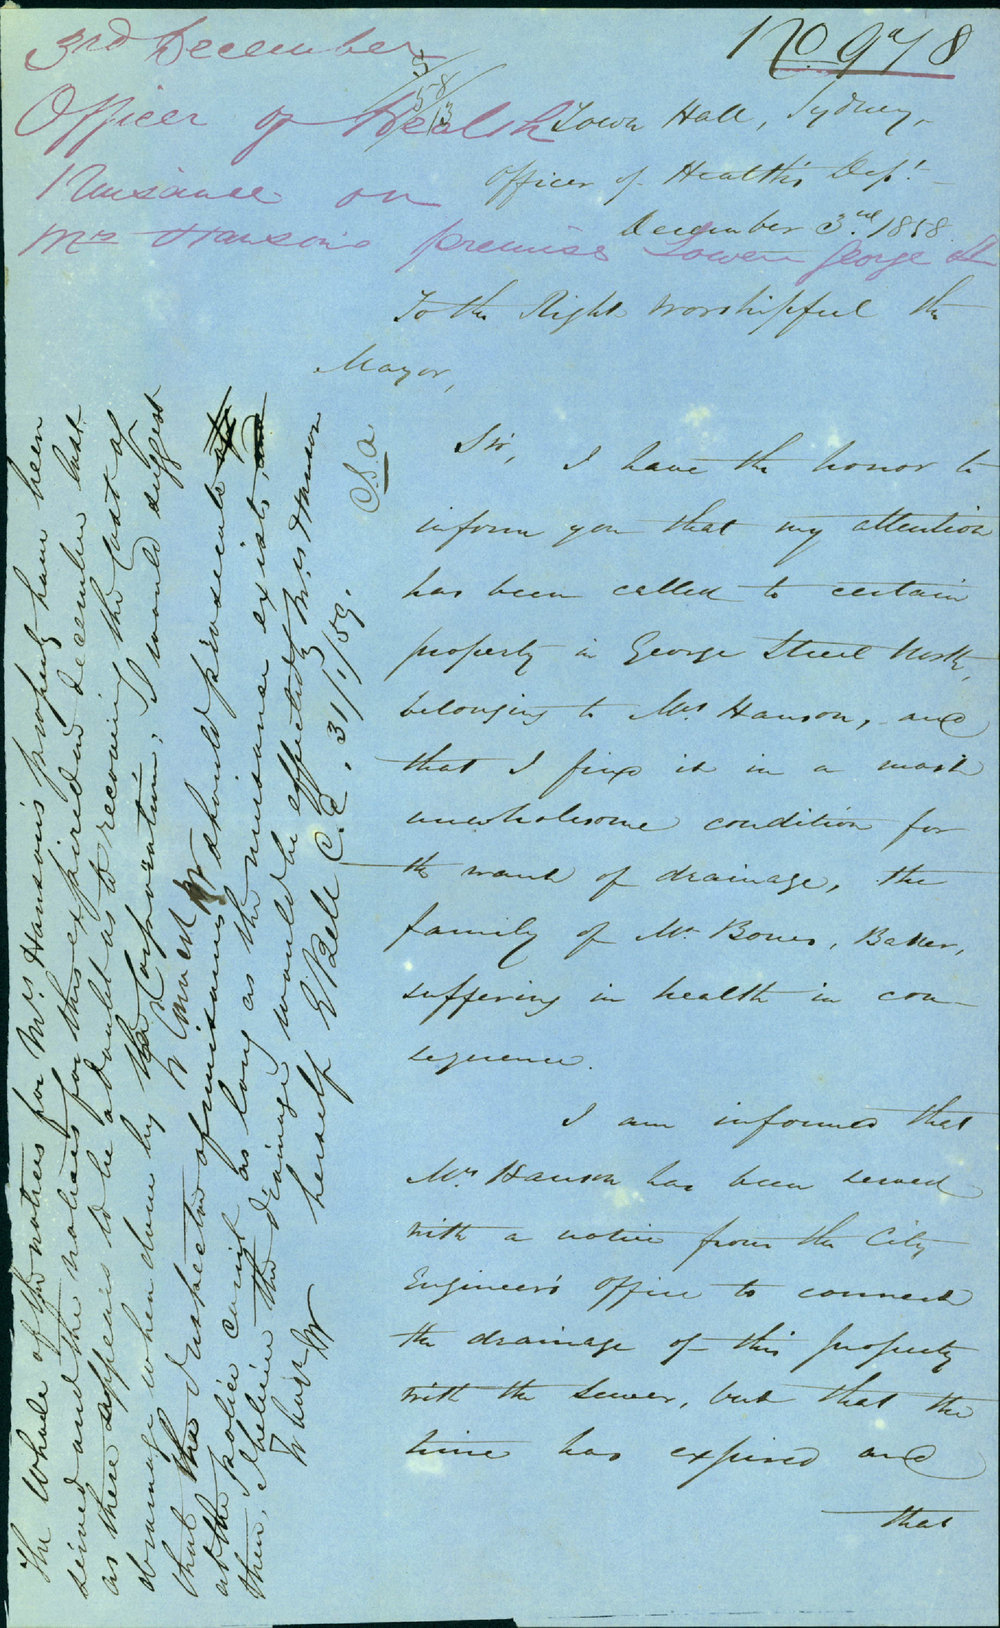 No 978
3rd December
58/13
Officer of Health
Nuisance on
Mrs Hanson's premises Lower George St
Town Hall, Sydney,
Officer of Health's Dept.
December 3rd. 1858
To the Right Worshipful the
Mayor,
Sir, I have the honor to
inform you that my attention
has been called to certain
property in George Street North,
belonging to Mrs Hanson, and
that I find it in a most
unwholesome condition for
the want of drainage, the
family of Mr Bones, Baker,
suffering in health in con-
sequence.
I am informed that
Mrs Hanson has been served
with a notice from the City
Engineer's Office to connect
the drainage of this property
with the sewer, but that the
time has expired and
that
The whole of the notices for Mrs Hanson's property have been
served and the notices for this expired in December last
as there appears to be a doubt as to recovering the Cost of
drainage when done by the Corporation, I would suggest
that the Inspector of nuisances should prosecute
at the police court as long as the nuisance exists,
then, I believe the drainage would be effected by Mrs Hanson
herself E Bell C.E. 31/1/59.